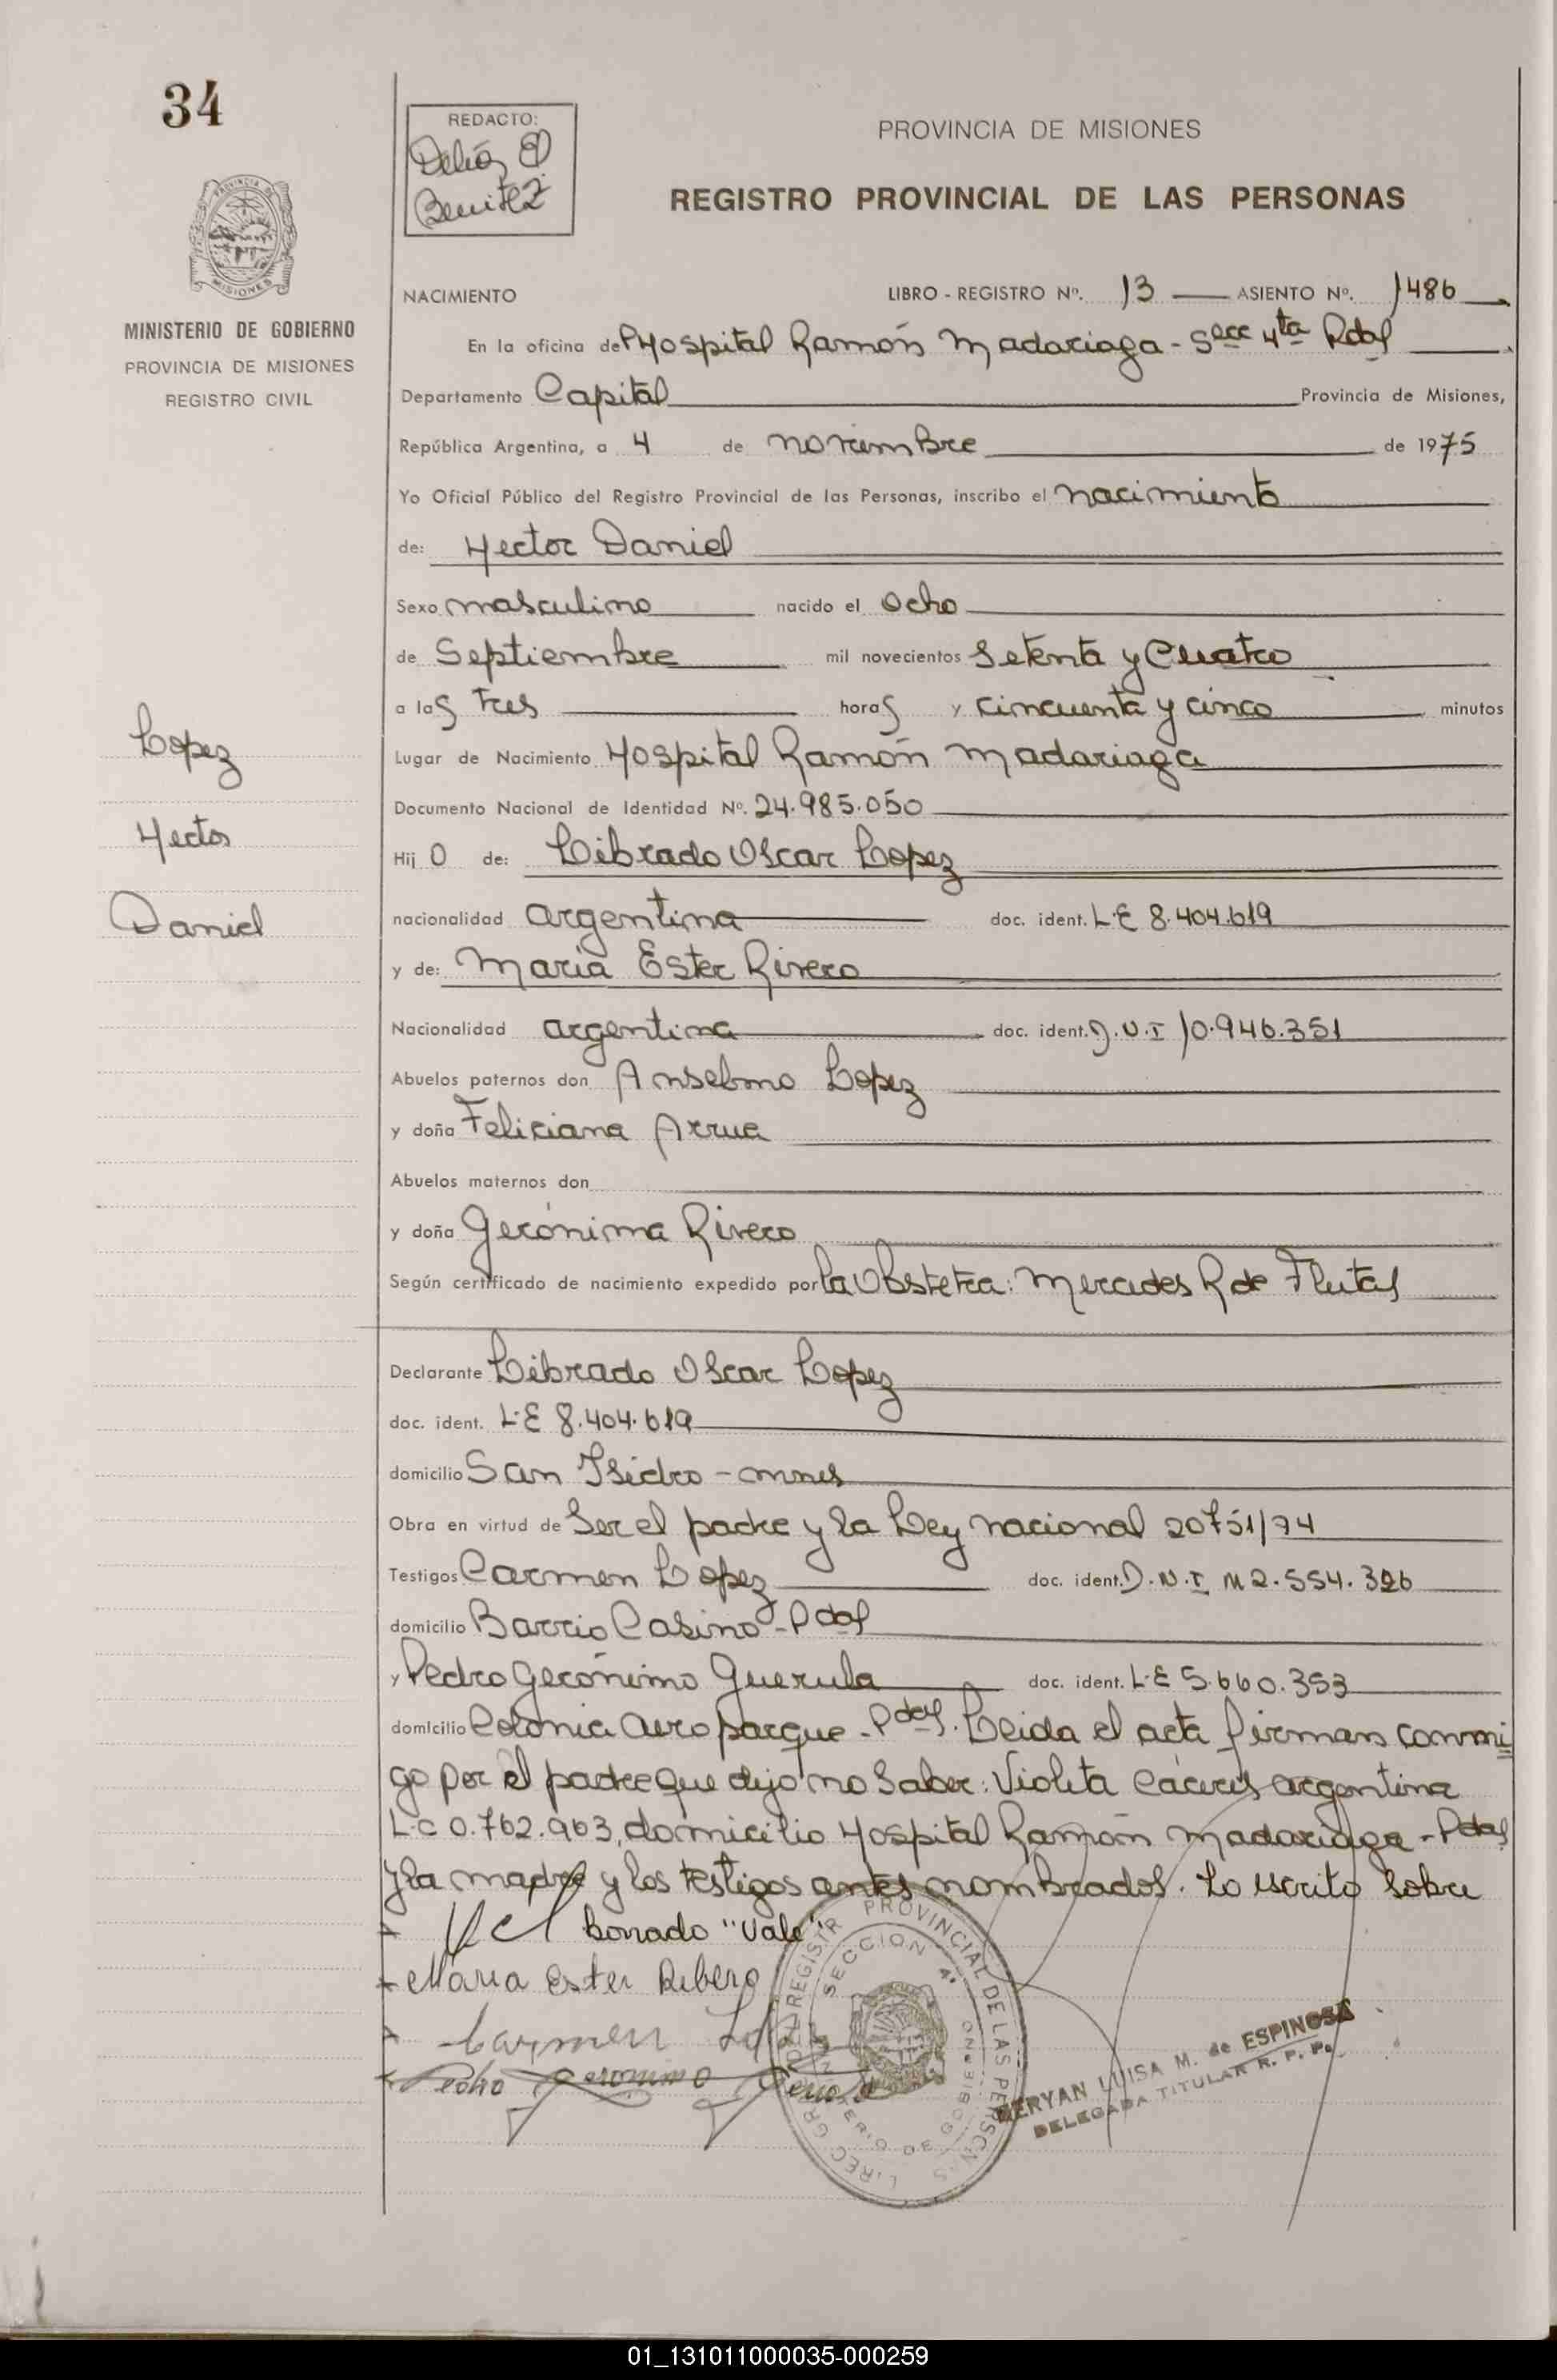 34
REDACTO:
Benitez
PROVINCIA DE MISIONES
REGISTRO PROVINCIAL DE LAS PERSONAS
MISIONES
MINISTERIO DE GOBIERNO
PROVINCIA DE MISIONES
REGISTRO CIVIL
NACIMIENTO
LIBRO - REGISTRO Nº. 13 ASIENTO Nº. 1486
En la oficina del Hospital Ramón Madariaga - Secc 4ta Pdas
Departamento Capital Provincia de Misiones,
República Argentina, a 4 de noviembre de 1975
Yo Oficial Público del Registro Provincial de las Personas, inscribo el nacimiento
de: Hector Daniel
Sexo masculino nacido el ocho
de Septiembre mil novecientos Setenta y Cuatro
a las tres horas y cincuenta y cinco minutos
Lugar de Nacimiento Hospital Ramón Madariaga
Documento Nacional de Identidad Nº. 24.985.050
Hijo de: Librado Oscar Lopez
nacionalidad argentina doc. ident. L.E 8.404.619
y de: Maria Ester Rivero
Nacionalidad argentina doc. ident. D.N.I 10.946.351
Abuelos paternos don Anselmo Lopez
y doña Feliciana Arrua
Abuelos maternos don
y doña Gerónima Rivero
Según certificado de nacimiento expedido por la Obstetra: Mercedes R de Flutas
Lopez
Hector
Daniel
Declarante Librado Oscar Lopez
doc. ident. L.E 8.404.619
domicilio San Isidro - mnes
Obra en virtud de Ser el padre y la Ley nacional 20751/74
Testigos Carmen Lopez doc. ident. D.N.I M 2.554.326
domicilio Barrio Casino - Pdas
y Pedro Gerónimo Querula doc. ident. L.E 5.660.353
domicilio Colonia Aeroparque - Pdas. Leida el acta firman conmi
go por el padre que dijo no Saber: Violeta Cáceres argentina
L.C 0.762.963, domicilio Hospital Ramón Madariaga - Pdas
y la madre y los testigos antes nombrados. Lo escrito sobre
borrado "Vale"
Maria Ester Ribero
Carmen
Pedro Geronimo
PROVINCIAL DE LAS PERSONAS
SECCION 4ª
MERYAN LUISA M. de ESPINOSA
DELEGADA TITULAR R. P. P.
01_131011000035-000259